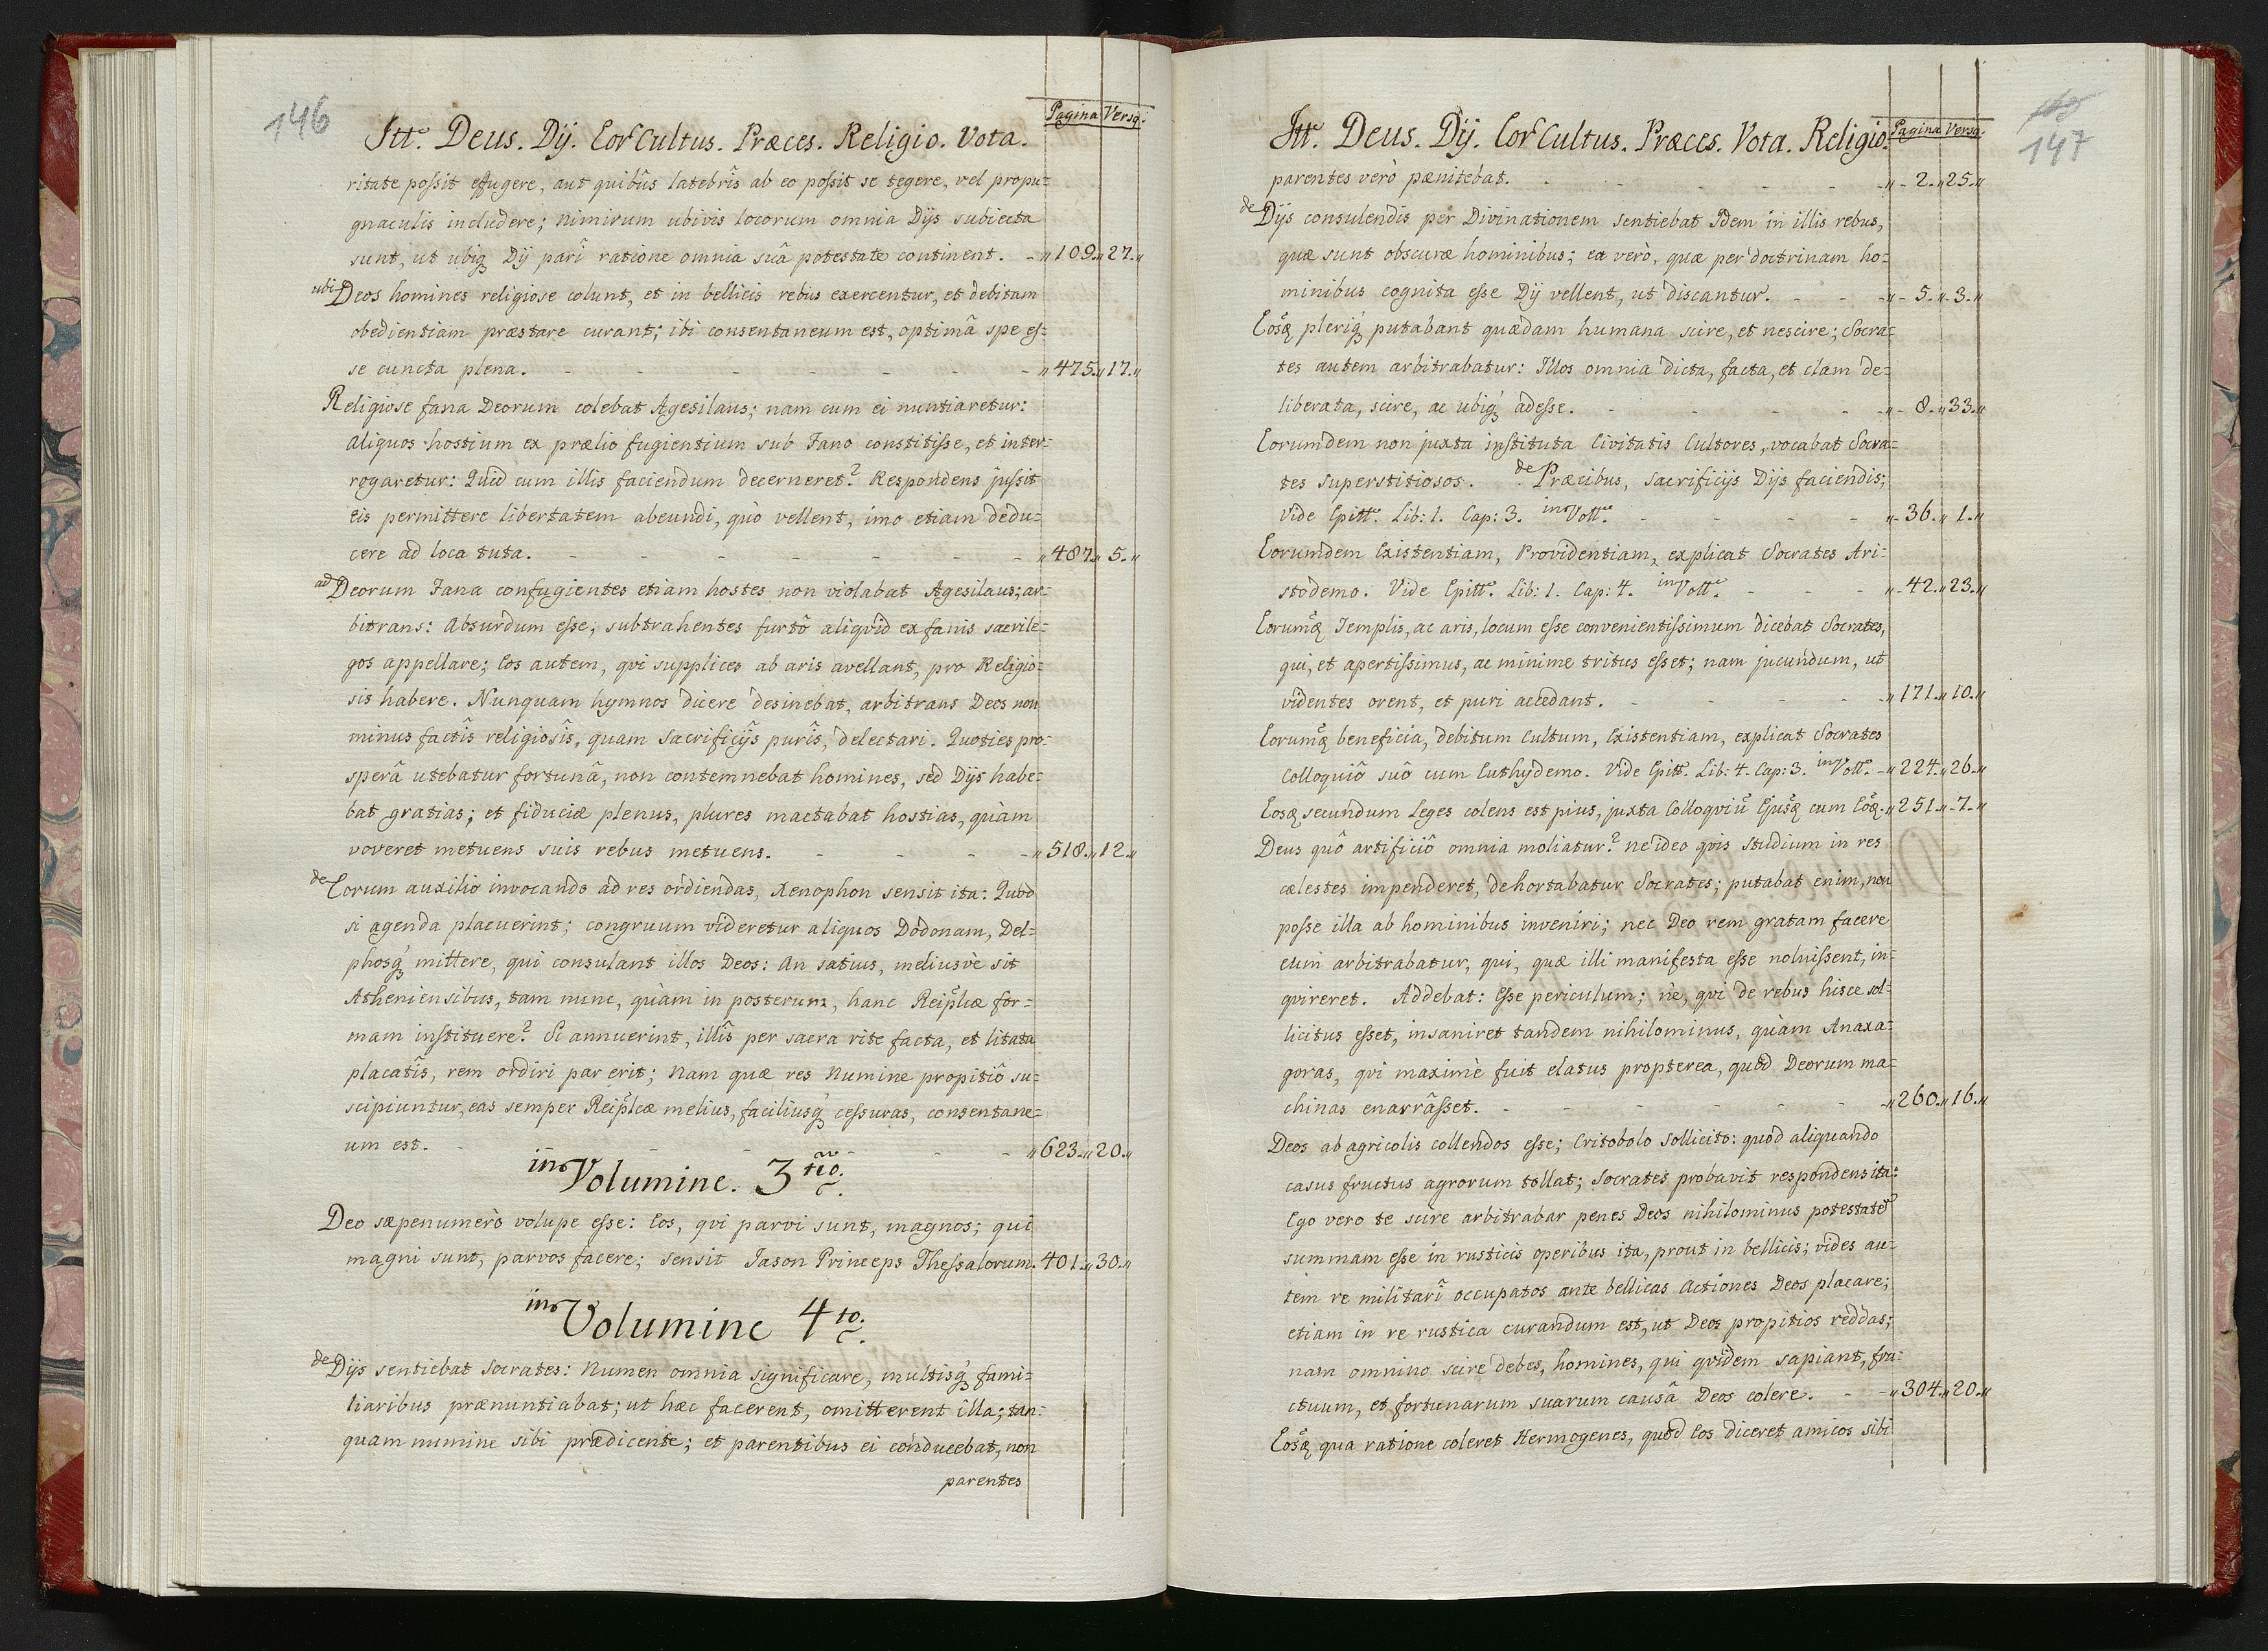 146
Pagina Versq.
Itt. Deus. Dij. Eor Cultus. Præces. Religio. Vota.
ritate possit effugere, aut quibûs latebrîs ab eo possit se tegere, vel propu=
gnaculis includere; nimirum ubivis locorum omnia Dijs subiecta
sunt, ut ubiq Dij parî ratione omnia suâ potestate continent. - „109.„27.„
ubi Deos homines religiose colunt, et in bellicis rebus exercentur, et debitam
obedientiam præstare curant; ibi consentaneum est, optimâ spe es=
se cuncta plena. - - - - - - - „475.„17.„
Religiose fana Deorum colebat Agesilaus; nam cum ei nuntiaretur:
aliquos hostium ex prælio fugientium sub Fano constitisse, et inter=
rogaretur: Quid cum illis faciendum decerneret? Respondens jussit
eis permittere libertatem abeundi, quò vellent, imo etiam dedu=
cere ad loca tuta. - - - - - - - „487.„5.„
ad Deorum Fana confugientes etiam hostes non violabat Agesilaus; ar=
bitrans: Absurdum esse, subtrahentes furtô aliqvid ex fanis sacrile=
gos appellare; Eos autem, qvi supplices ab aris avellant, pro Religio=
sis habere. Nunquam hymnos dicere desinebat, arbitrans Deos non
minus factîs religiosîs, quam sacrificijs purîs, delectari. Quoties pro=
sperâ utebatur fortunâ, non contemnebat homines, sed Dijs habe=
bat gratias; et fiduciæ plenus, plures mactabat hostias, quàm
voveret metuens suis rebus metuens. - - - - „518.„12.„
de Eorum auxilio invocando ad res ordiendas, Xenophon sensit ita: Quod
si agenda placuerint; congruum videretur aliquos Dodonam, Del=
phosq mittere, qui consulant illos Deos: An satius, meliusvè sit
Atheniensibus, tam nunc, quàm in posterum, hanc Reiplcæ for=
mam instituere? Si annuerint, illîs per sacra rite facta, et litata
placatîs, rem ordiri par erit; Nam quæ res Numine propitiô su=
scipiuntur, eas semper Reiplcæ melius, faciliusq cessuras, consentane=
um est. - - - - - - „623.„20.„
in Volumine. 3tio.
Deo sæpenumerò volupe esse: Eos, qvi parvi sunt, magnos; qui
magni sunt, parvos facere; sensit Jason Princeps Thessalorum. 401.„30.„
in Volumine 4to.
de Dijs sentiebat Socrates: Numen omnia significare, multisq fami=
liaribus prænuntiabat; ut hæc facerent, omitterent illa; tan=
quam numine sibi prædicente; et parentibus ei conducebat, non
parentes
147
Pagina Versq.
Itt. Deus. Dij. Eor Cultus. Præces. Vota. Religio.
parentes verò pænitebat. - - - - - „- 2.„25.„
de Dijs consulendis per Divinationem sentiebat Idem in illis rebus,
quæ sunt obscuræ hominibus; ea verò, quæ per doctrinam ho=
minibus cognita esse Dij vellent, ut discantur. - - - „- 5.„-3.„
Eosq pleriq putabant quædam humana scire, et nescire; Socra=
tes autem arbitrabatur: Illos omnia dicta, facta, et clam de=
liberata, scire, ac ubiq adesse. - - - - „- 8.„33.„
Eorumdem non juxta instituta Civitatis Cultores, vocabat Socra=
tes superstitiosos. de Præcibus, sacrificijs Dijs faciendis;
Vide Epitt. Lib: 1. Cap: 3. in Vott. - - - - „- 36.„1.„
Eorumdem Existentiam, Providentiam, explicat Socrates Ari=
stodemo. Vide Epitt. Lib: 1. Cap: 4. in Vott. - - - „- 42.„23.„
Eorumq Templis, ac aris, locum esse convenientissimum dicebat Socrates,
qui, et apertissimus, ac minime tritus esset; nam jucundum, ut
videntes orent, et puri accedant. - - - - „171.„10.„
Eorumq beneficia, debitum Cultum, Existentiam, explicat Socrates
Colloquiô suô cum Euthydemo. Vide Epitt. Lib: 4. Cap: 3. in Vott. - „224.„26.„
Eosq secundum Leges colens est pius, juxta Colloqviū Ejusq cum Eoq. „251.„-7.„
Deus quô artificiô omnia moliatur? ne ideo qvis studium in res
cælestes impenderet, dehortabatur Socrates; putabat enim, non
posse illa ab hominibus inveniri; nec Deo rem gratam facere
eum arbitrabatur, qui, quæ illi manifesta esse noluissent, in=
qvireret. Addebat: Esse periculum; nè, qvi de rebus hisce sol=
licitus esset, insaniret tandem nihilominus, quàm Anaxa=
goras, qvi maximè fuit elatus propterea, quod Deorum ma=
chinas enarrâsset. - - - - - - „260.„16.„
Deos ab agricolis collendos esse; Critobolo sollicito: quod aliquando
casus fructus agrorum tollat; Socrates probavit respondens ita:
Ego vero te scire arbitrabar penes Deos nihilominus potestatē
summam esse in rusticis operibus ita, prout in bellicis; vides au=
tem re militarî occupatos ante bellicas Actiones Deos placare;
etiam in re rustica curandum est, ut Deos propitios reddas;
nam omnino scire debes, homines, qui qvidem sapiant, fru=
ctuum, et fortunarum suarum causâ Deos colere. - - „304.„20.„
Eosq qua ratione coleret Hermogenes, quod Eos diceret amicos sibi